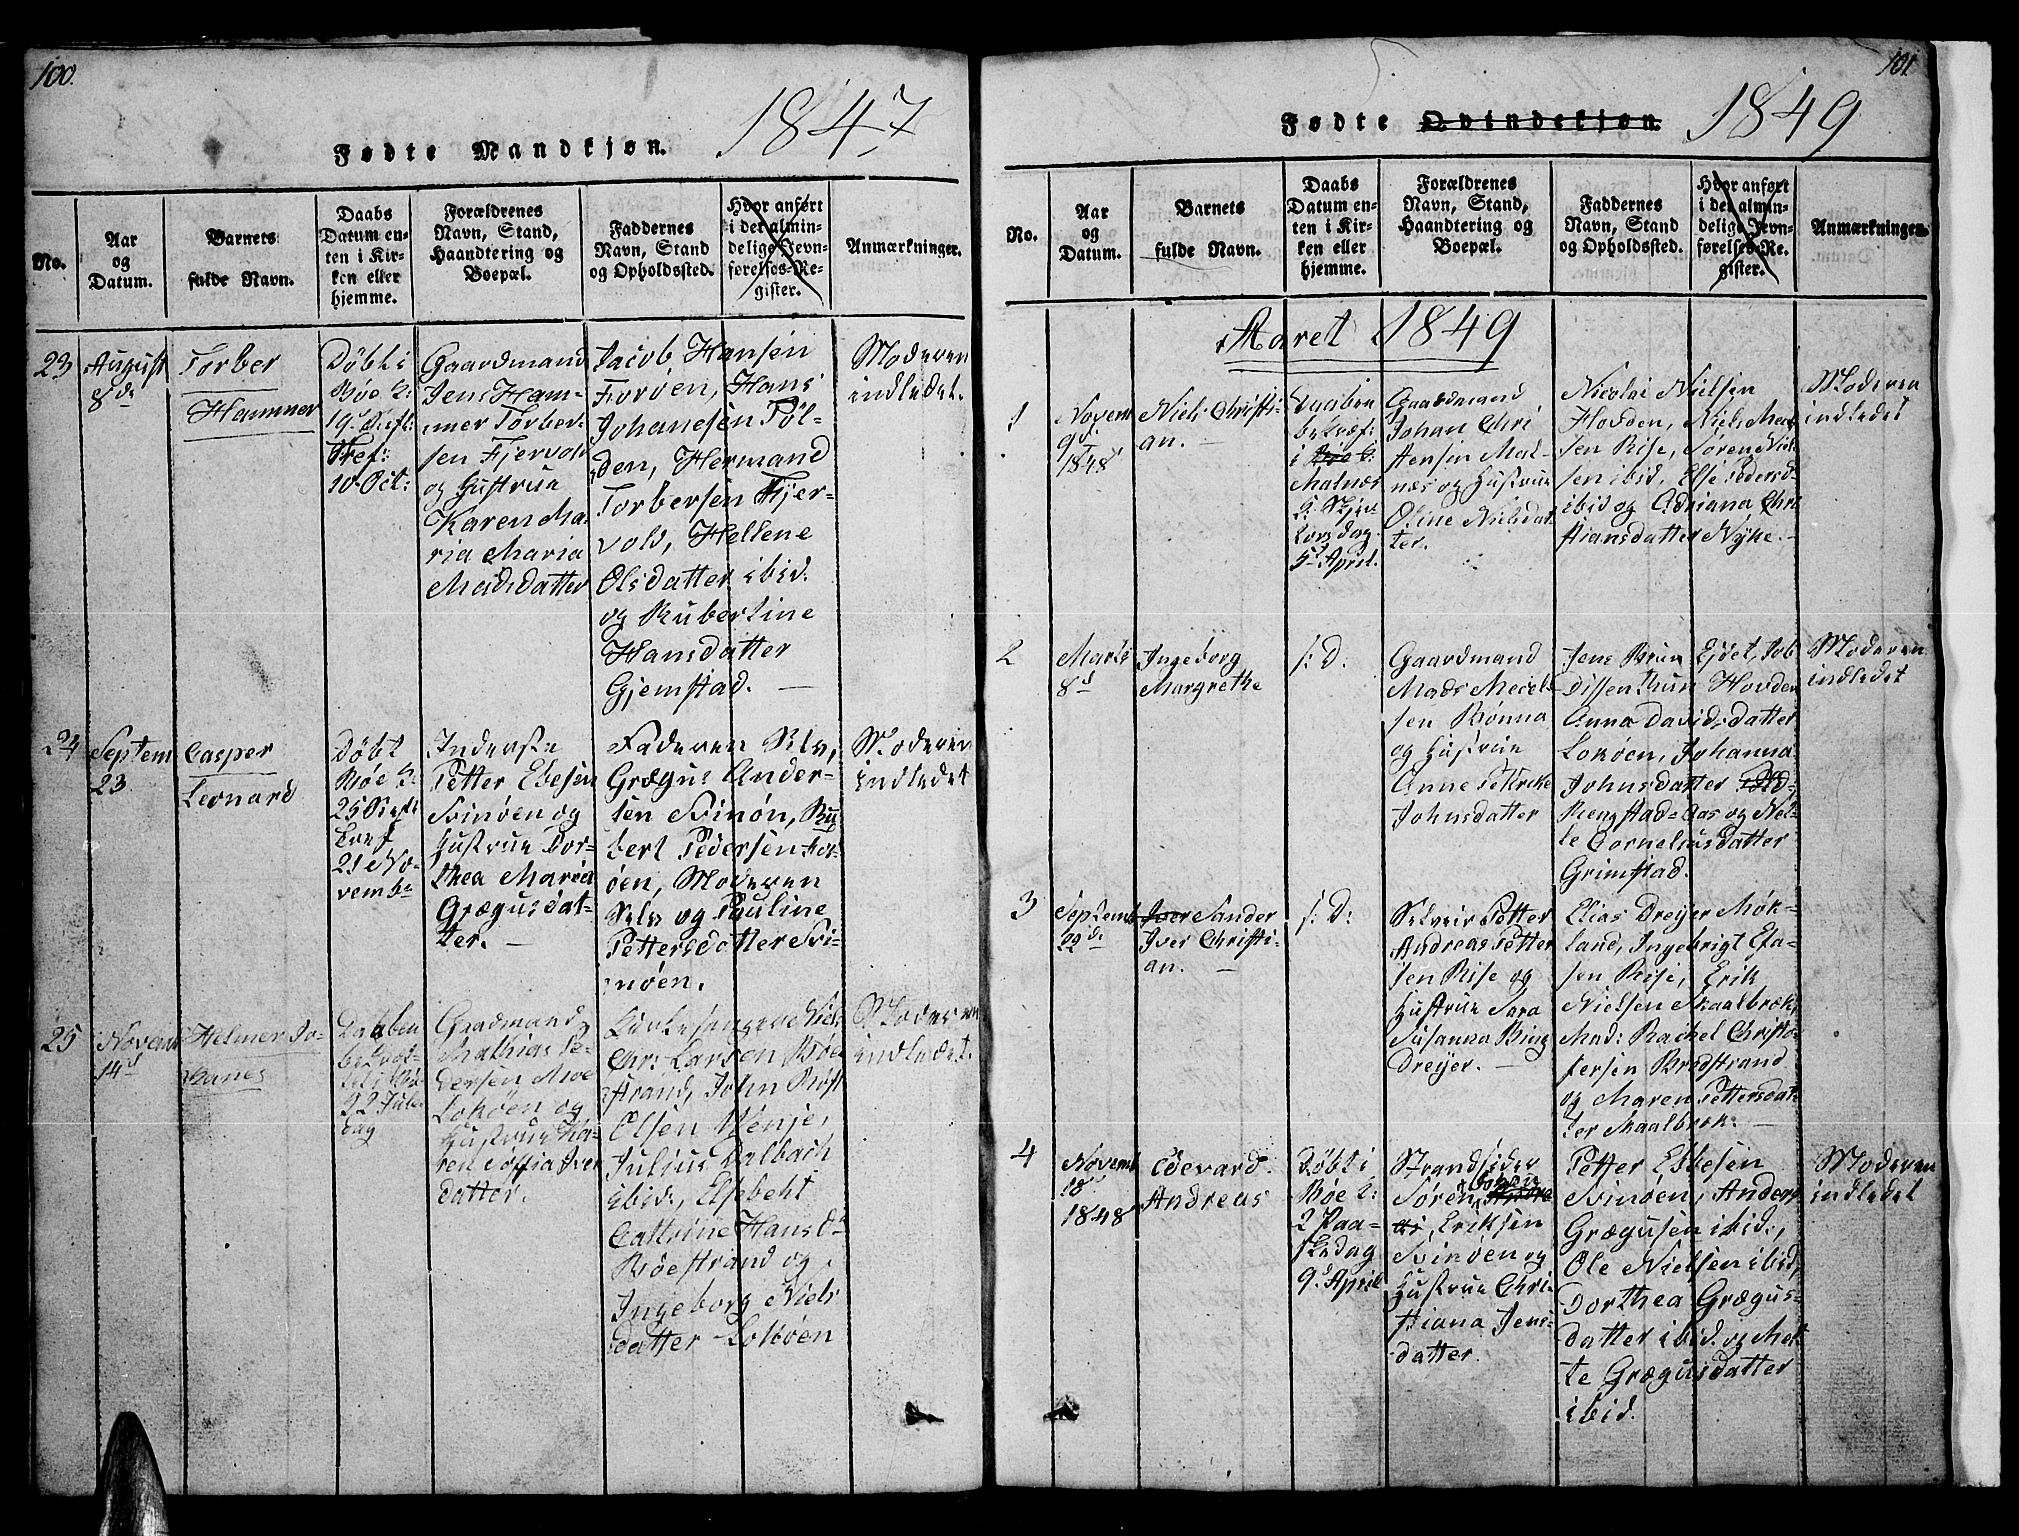 100.
1847
Fødte Mandkjøn.
No.
Aar
og
Datum.
Barnets
fulde Navn.
Daabs
Datum en-
ten i Kir-
ken eller
hjemme.
Forældrenes
Navn, Stand,
Haandtering og
Boepæl.
Faddernes
Navn, Stand
og Opholdssted.
Hvor anført
i det almin-
delige Jevn-
førelses-Re-
gister.
Anmærkninger.
23
August
8de
Torber
Hammer
Døbt i
Bøe K:
19
10 Oct:
Gaardmand
Jens Ham-
mer Torber-
sen Fjervold
og Hustrue
Karen Ma-
ria Maria
Madsdatter
Jacob Hansen
Forøen, Hans
Johanesen Føl-
den, Hermand
Torbersen Fjer-
vold, Hellene
Olsdatter ibid.
og Rubertine
Hansdatter
Gjemstad. —
Moderen
indledet.
24
Septem
23.
Casper
Leonard
Døbt
Bøe K:
25
21 No-
vembr
Inderste
Petter Ebesen
Svinøen og
Hustrue Dor-
thea Maria
Grægusdat-
ter. —
Faderen Selv,
Grægus Ander-
sen Svinøn, Ru-
bert Pedersen For-
øen, Moderen
Selv og Pauline
Pettersdatter Svi-
nøen.
Moderen
indledet
25
Novemb
14d
Helmer Jo-
hanes
Daaben
22 Jul
dag
Gaardmand
Mathias Pe-
dersen Moe
Lokøen og
Hustrue Ka-
ren Sofia Iver
datter.
Kirkesanger Niels
Chr. Larsen Bøe
strand, John Røst
Olsen Venje,
Julius Dalbach
ibid., Elsebeht
Cattrine Hansd
Bøestrand og
Ingeborg Niels
datter Lokøen
Moderen
indledet.
101
Fødte Qvindekjøn.
1849
No.
Aar
og
Datum.
Barnets
fulde Navn.
Daabs
Datum en-
ten i Kir-
ken eller
hjemme.
Forældrenes
Navn, Stand,
Haandtering og
Boepæl.
Faddernes
Navn, Stand
og Opholdssted.
Hvor anført
i det almin-
delige Jevn-
førelses-Re-
gister.
Anmærkninger.
Aaret 1849
1
Novem
9d
1848
Niels Christi-
an. —
Daaben
bekræf:
i Bøe K:
Malnæs
K: Skjær
torsdag
5d April.
Gaardmand
Johan Chri
stensen Mal-
næs og Hustrue
Oline Nielsdat-
ter.
Nicolai Nielsen
Hovden, Niels Mad-
sen Rise, Søren Niel-
sen ibid, Else Pedersd
ibid og Adriana Chri
stiansdatter Nyke. —
Moderen
indledet
2
Marts
8d
Ingeborg
Margrethe
s: D:
Gaardmand
Mads Meiel-
sen Rønna
og Hustrue
Anne Petricke
Johnsdatter
Jens Brun Eidet, Job
Dissenthun Hovden
Anna Davidsdatter
Lokøen, Johanna
Johnsdatter
Rengstad-Aas og Nel-
le Corneliusdatter
Grimstad.
Moderen
indledet
3
Septemb
22de
Iver Sander
Iver Christi-
an. —
s: D:
Selveier Petter
Andreas Petter
sen Rise og
Hustrue Sara
Susanna Bing
Dreyer. —
Elias Dreyer Møk-
land, Ingebrigt Efa-
sen Rise, Erik
Nielsen Skaalbrek,
Mad: Rachel Christo-
fersen Brodstrand
og Maren Pettersdat-
ter Skaalbrek: —
4
Novemb
18d
1848
Edevard
Andreas
Døbt i
Bøe K:
2 Paa-
skedag
9d April
Strandsider
Søren Johan
Eriksen
Svinøen og
Hustrue Chri-
stiana Jens-
datter.
Petter Ebesen
Svinøen, Anders
Grægusen ibid,
Ole Nielsen ibid,
Dorthea Grægus-
datter ibid. og Met-
te Grægusdatter
ibid.
Moderen
indledet